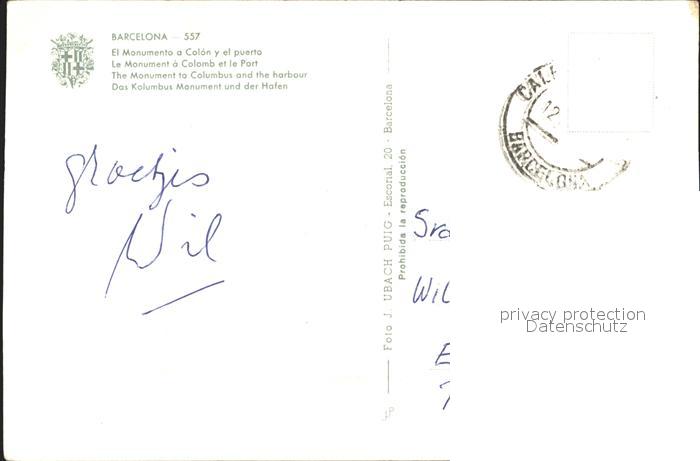 BARCELONA - 557
El Monumento a Colón y el puerto
Le Monument à Colomb et le Port
The Monument to Columbus and the harbour
Das Kolumbus Monument und der Hafen
groetjes
Wil
Foto J. UBACH PUIG - Escorial, 20 - Barcelona
Prohibida la reproducción
BARCELONA
Wil
E
privacy protection
Datenschutz